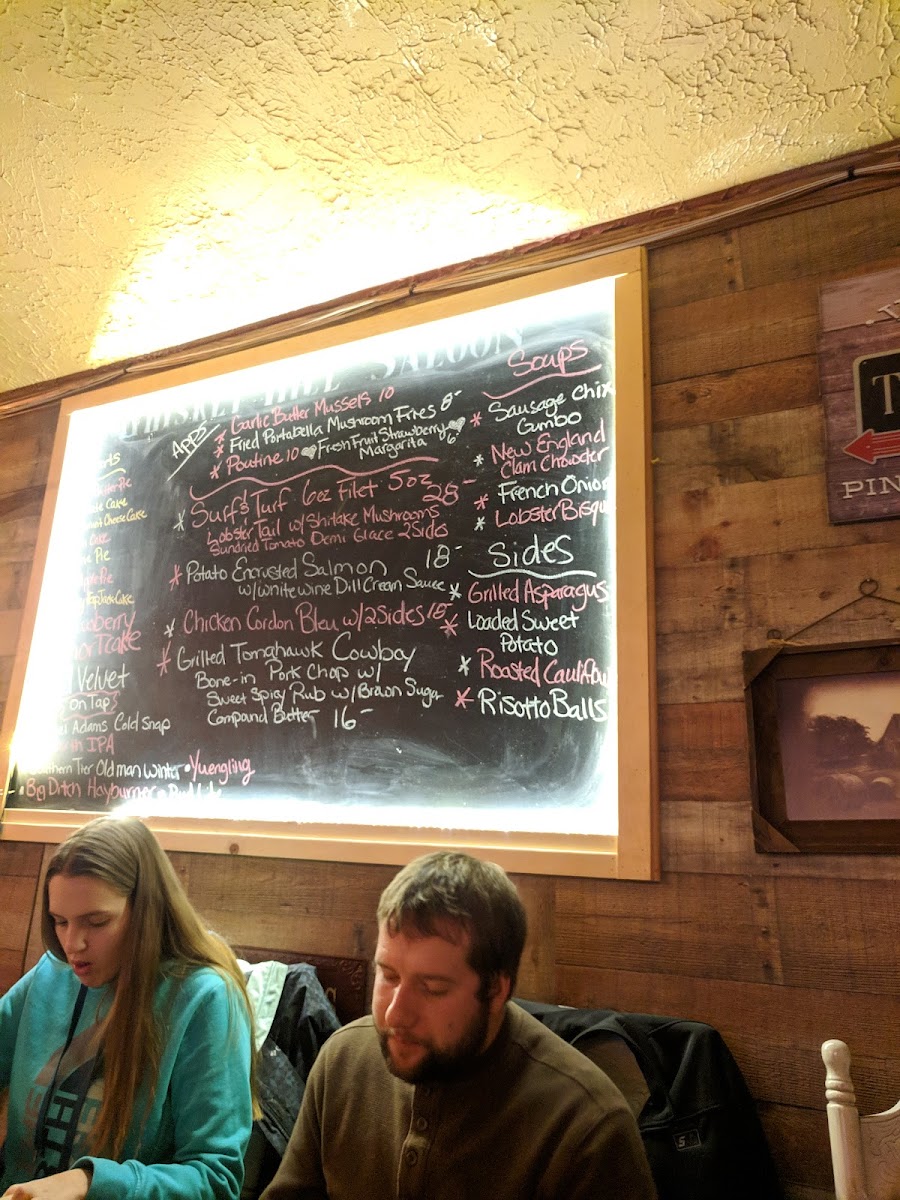 SALOON
Apps
* Garlic Butter Mussels 10
* Fried Portabella Mushroom Fries 8-
* Poutine 10 Fresh Fruit Strawberry
Margarita 6
* Surf & Turf 6oz Filet 5oz 28-
Lobster Tail w/Shitake Mushrooms
Sundried Tomato Demi Glace 2 Sides
* Potato Encrusted Salmon 18-
w/white wine Dill Cream Sauce
* Chicken Cordon Bleu w/2 Sides 15-
* Grilled Tomahawk Cowboy
Bone-in Pork Chop w/
Sweet Spicy Rub w/Brown Sugar
Compound Butter 16-
Soups
* Sausage Chix
Gumbo
* New England
Clam Chowder
* French Onion
* Lobster Bisqu
Sides
* Grilled Asparagus
* Loaded Sweet
Potato
* Roasted Cauliflow
* Risotto Balls
Pie
Cake
Cheese Cake
Cake
Pie
Pie
Cake
Velvet
on Tap
Adams Cold Snap
IPA
Tier Old man Winter • Yuengling
• Big Ditch Hayburner •
PIN